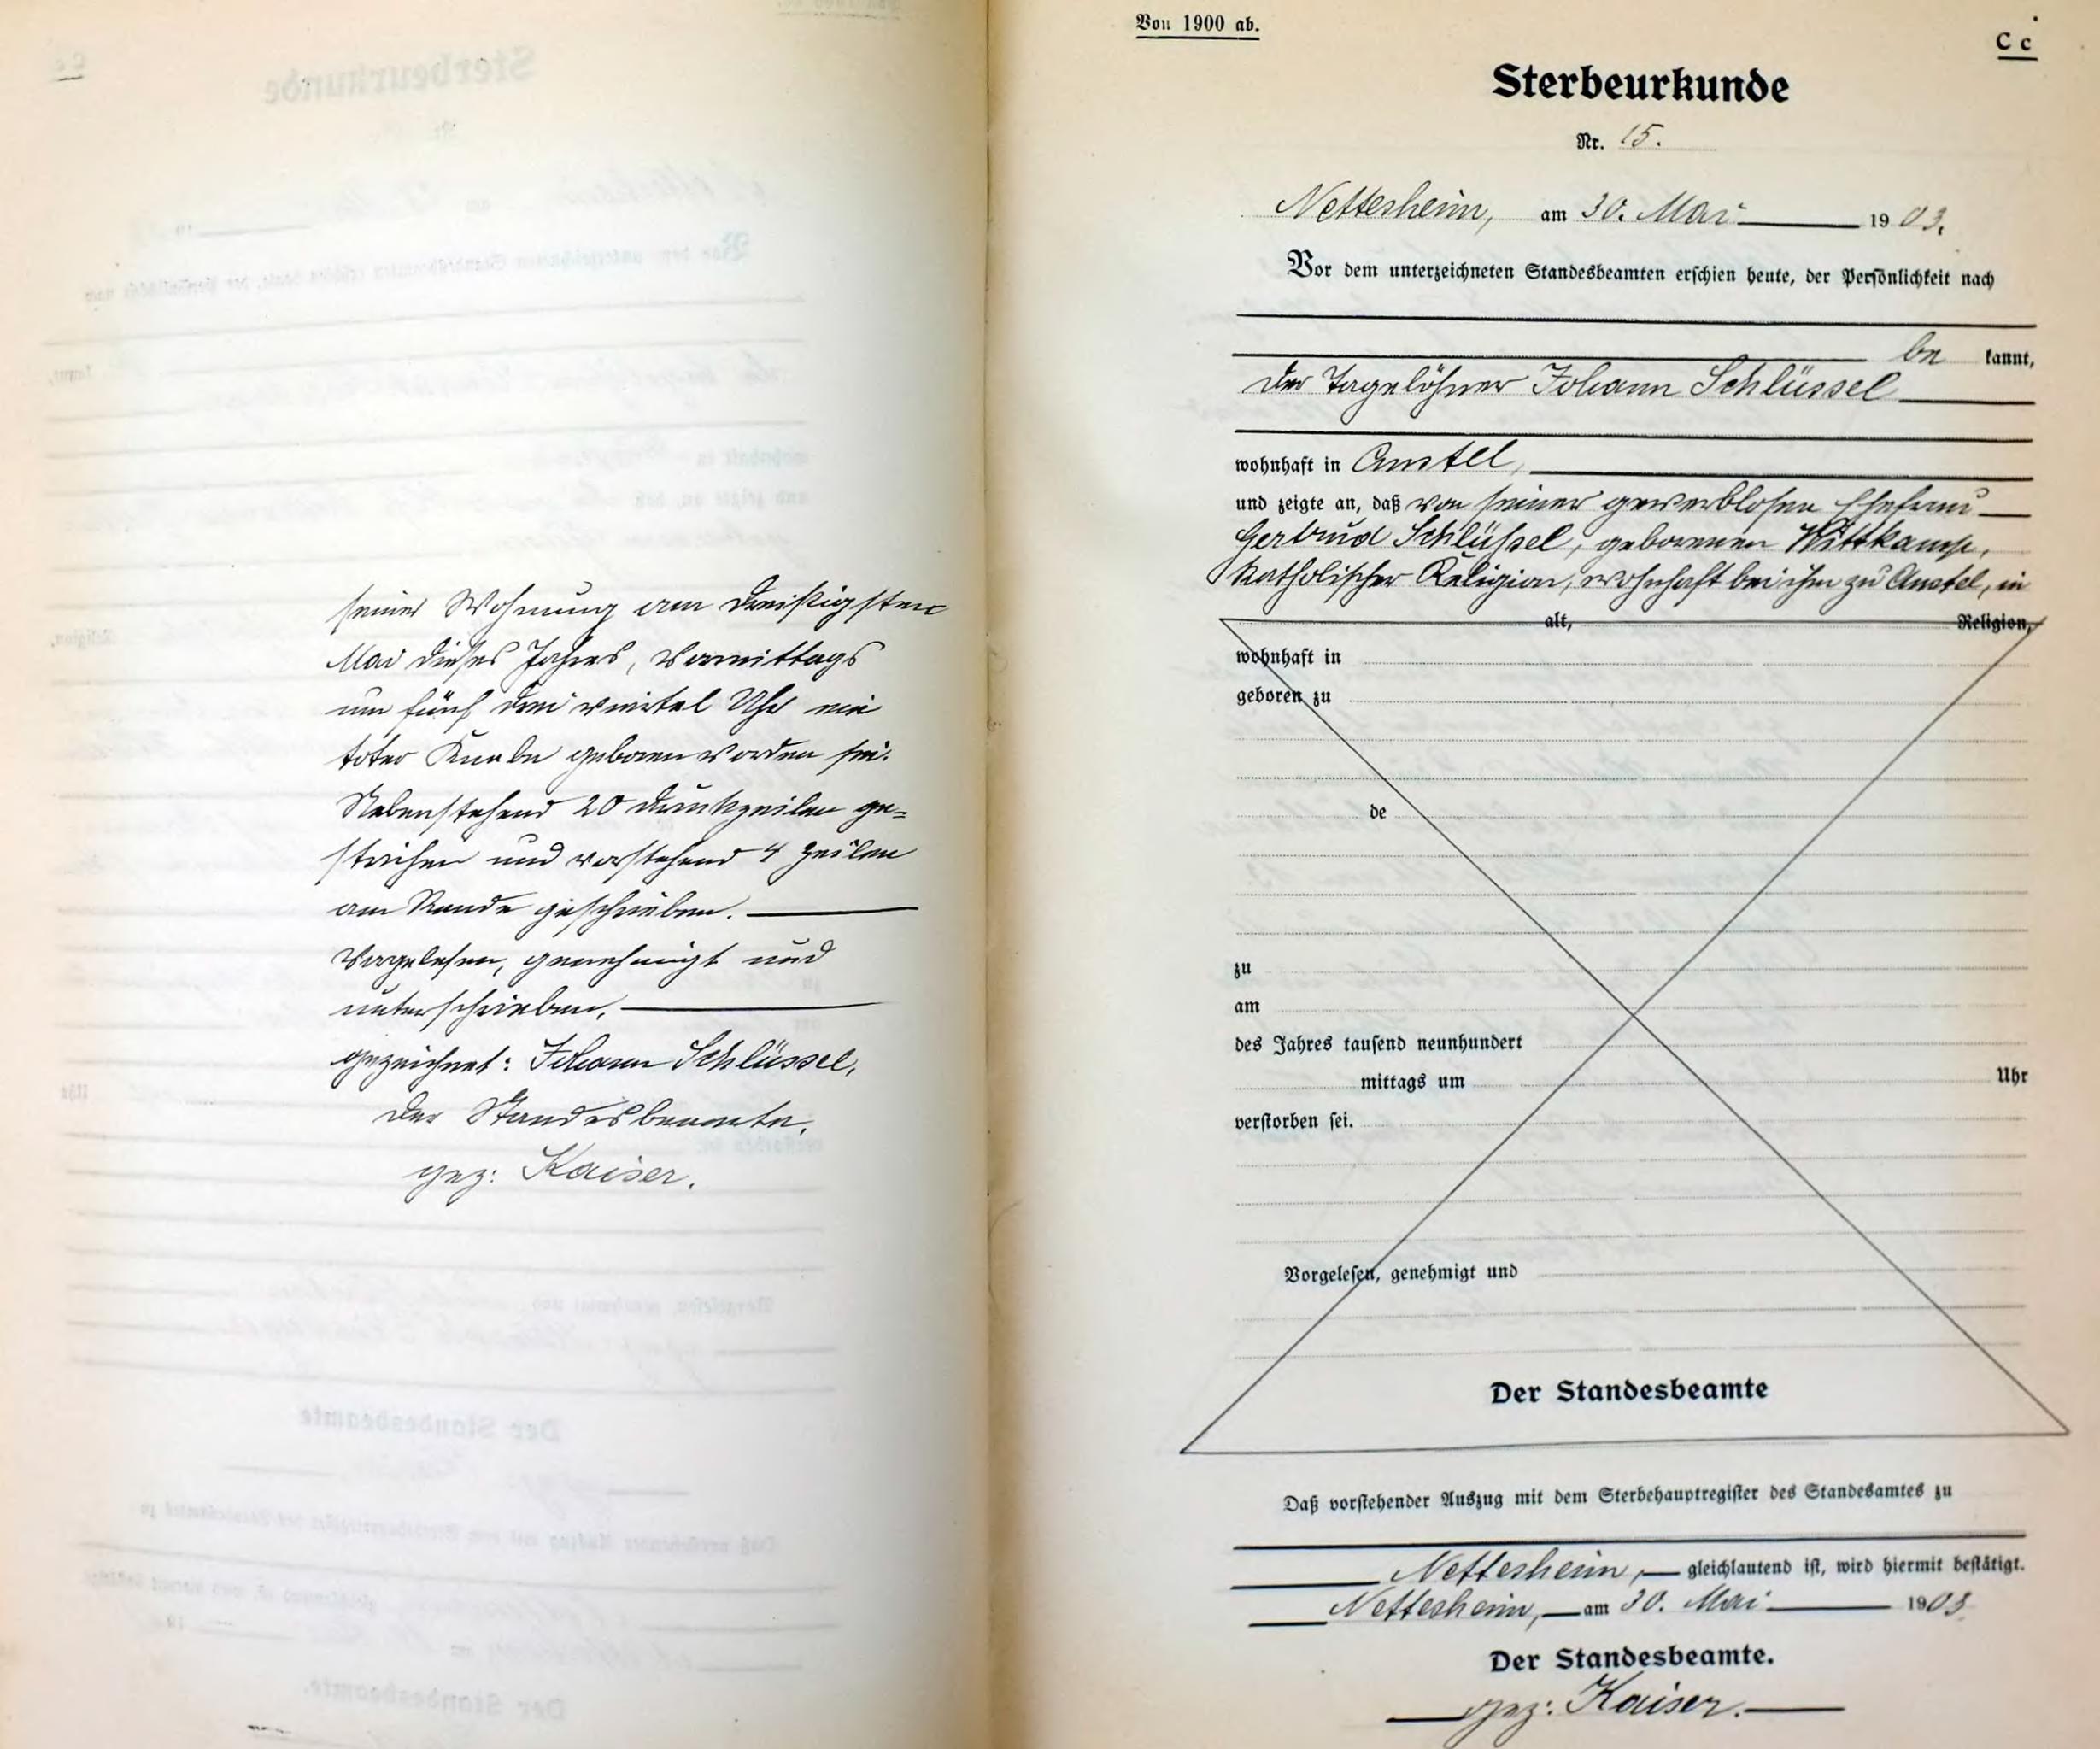 Von 1900 ab.
C c
Sterbeurkunde
Nr. 15.
Nettesheim, am 30. Mai 1903.
Vor dem unterzeichneten Standesbeamten erschien heute, der Persönlichkeit nach
be kannt,
der Tagelöhner Johann Schlüssel
wohnhaft in Anstel,
und zeigte an, daß von seiner gewerblosen Ehefrau
Gertrud Schlüssel, geborenen Wittkamp,
katholischer Religion, wohnhaft bei ihm zu Anstel, in
alt, Religion,
wohnhaft in
geboren zu
de
zu
am
des Jahres tausend neunhundert
mittags um Uhr
verstorben sei.
Vorgelesen, genehmigt und
Der Standesbeamte
Daß vorstehender Auszug mit dem Sterbehauptregister des Standesamtes zu
Nettesheim, gleichlautend ist, wird hiermit bestätigt.
Nettesheim, am 30. Mai 1903
Der Standesbeamte.
gez: Kaiser.
seiner Wohnung am dreißigsten
Mai dieses Jahres, Vormittags
um fünf drei viertel Uhr ein
toter Knabe geboren worden sei.
Nebenstehend 20 Druckzeilen ge=
strichen und vorstehend 4 Zeilen
am Rande geschrieben.
Vorgelesen, genehmigt und
unterschrieben.
gezeichnet: Johann Schlüssel,
Der Standesbeamte.
gez: Kaiser.